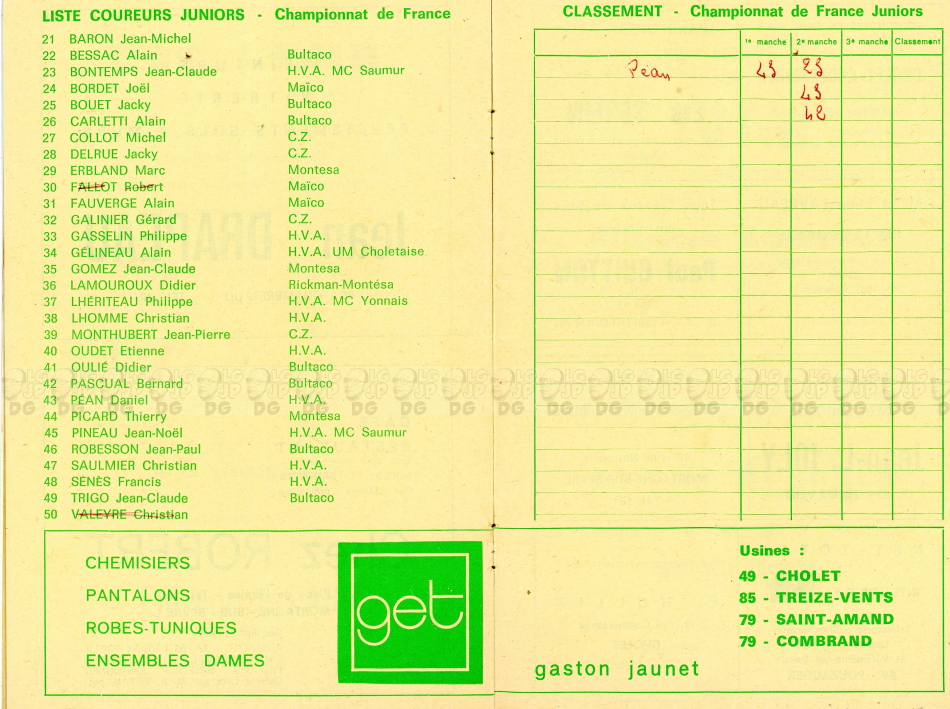 LISTE COUREURS JUNIORS - Championnat de France
21 BARON Jean-Michel
22 BESSAC Alain Bultaco
23 BONTEMPS Jean-Claude H.V.A. MC Saumur
24 BORDET Joël Maïco
25 BOUET Jacky Bultaco
26 CARLETTI Alain Bultaco
27 COLLOT Michel C.Z.
28 DELRUE Jacky C.Z.
29 ERBLAND Marc Montesa
30 FALLOT Robert Maïco
31 FAUVERGE Alain Maïco
32 GALINIER Gérard C.Z.
33 GASSELIN Philippe H.V.A.
34 GÉLINEAU Alain H.V.A. UM Choletaise
35 GOMEZ Jean-Claude Montesa
36 LAMOUROUX Didier Rickman-Montésa
37 LHÉRITEAU Philippe H.V.A. MC Yonnais
38 LHOMME Christian H.V.A.
39 MONTHUBERT Jean-Pierre C.Z.
40 OUDET Etienne H.V.A.
41 OULIÉ Didier Bultaco
42 PASCUAL Bernard Bultaco
43 PÉAN Daniel H.V.A.
44 PICARD Thierry Montesa
45 PINEAU Jean-Noël H.V.A. MC Saumur
46 ROBESSON Jean-Paul Bultaco
47 SAULMIER Christian H.V.A.
48 SÉNÈS Francis H.V.A.
49 TRIGO Jean-Claude Bultaco
50 VALEYRE Christian
CHEMISIERS
PANTALONS
ROBES-TUNIQUES
ENSEMBLES DAMES
get
CLASSEMENT - Championnat de France Juniors
1e manche 2e manche 3e manche Classement
Péan 43 23
43
42
Usines :
49 - CHOLET
85 - TREIZE-VENTS
79 - SAINT-AMAND
79 - COMBRAND
gaston jaunet